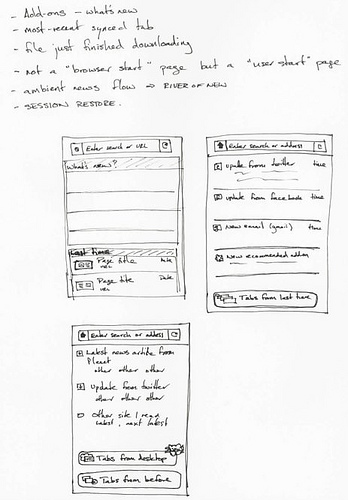 - Add-ons - what's new
- most-recent synced tab
- file just finished downloading
- not a "browser start" page but a "user start" page
- ambient news flow => RIVER OF NEW
- SESSION RESTORE.
Enter search or URL
What's new?
Last time
Page title Date
URL
Page title Date
URL
Enter search or address
update from twitter time
update from facebook time
New email (gmail) time
New recommended addon
Tabs from last time
Enter search or address
Latest news article from
Planet
other other other
Update from twitter
other other other
Other site I read
latest, next latest
Tabs from desktop
Tabs from before